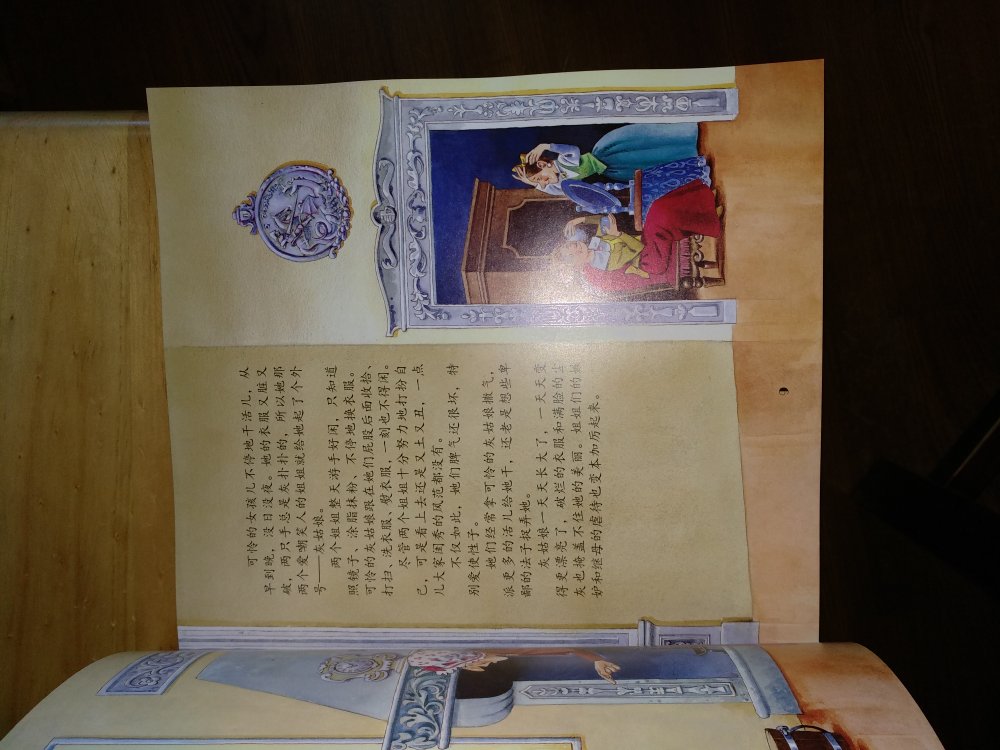 可怜的女孩儿不停地干活儿，从
早到晚，没日没夜。她的衣服又脏又
破，两只手总是灰扑扑的，所以她那
两个爱嘲笑人的姐姐就给她起了个外
号——灰姑娘。
两个姐姐整天游手好闲，只知道
照镜子、涂脂抹粉、不停地换衣服。
可怜的灰姑娘跟在她们屁股后面收拾、
打扫、洗衣服、熨衣服，一刻也不得闲。
尽管两个姐姐十分努力地打扮自
己，可是看上去还是又土又丑，一点
儿大家闺秀的风范都没有。
不仅如此，她们脾气还很坏，特
别爱使性子。
她们经常拿可怜的灰姑娘撒气，
派更多的活儿给她干，还老是想些卑
鄙的法子捉弄她。
灰姑娘一天天长大了，一天天变
得更漂亮了，破烂的衣服和满脸的尘
灰也掩盖不住她的美丽。姐姐们的嫉
妒和继母的虐待也变本加厉起来。
9